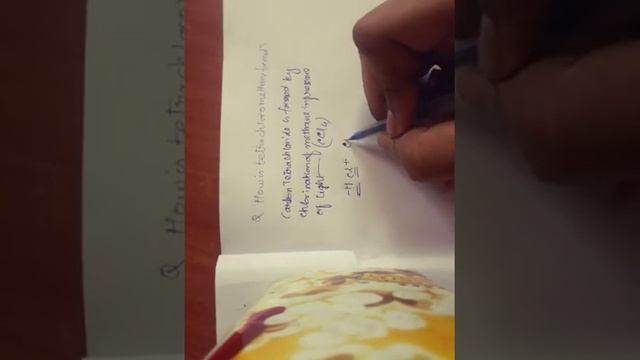 Q How is tetrachloromethane formed?
Carbon Tetrachloride is formed by
chlorination of methane in presence
of light (CCl4)